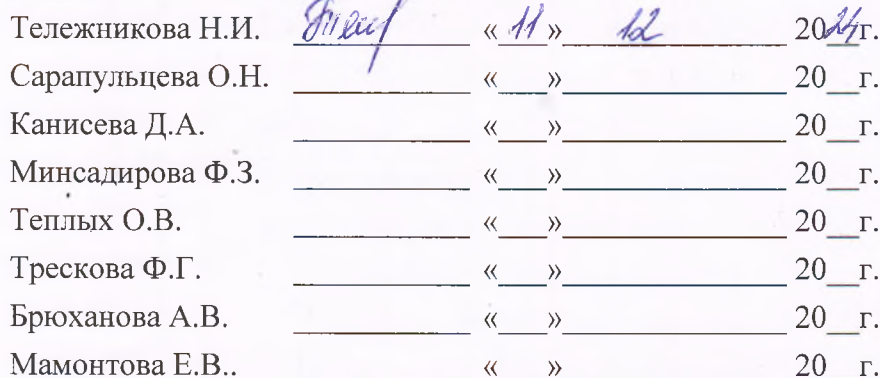 Тележникова Н.И. ________ «11» 12 2024г.
Сарапульцева О.Н. ________ «___»____________ 20__г.
Канисева Д.А. ________ «___»____________ 20__г.
Минсадирова Ф.З. ________ «___»____________ 20__г.
Теплых О.В. ________ «___»____________ 20__г.
Трескова Ф.Г. ________ «___»____________ 20__г.
Брюханова А.В. ________ «___»____________ 20__г.
Мамонтова Е.В.. « » 20 г.